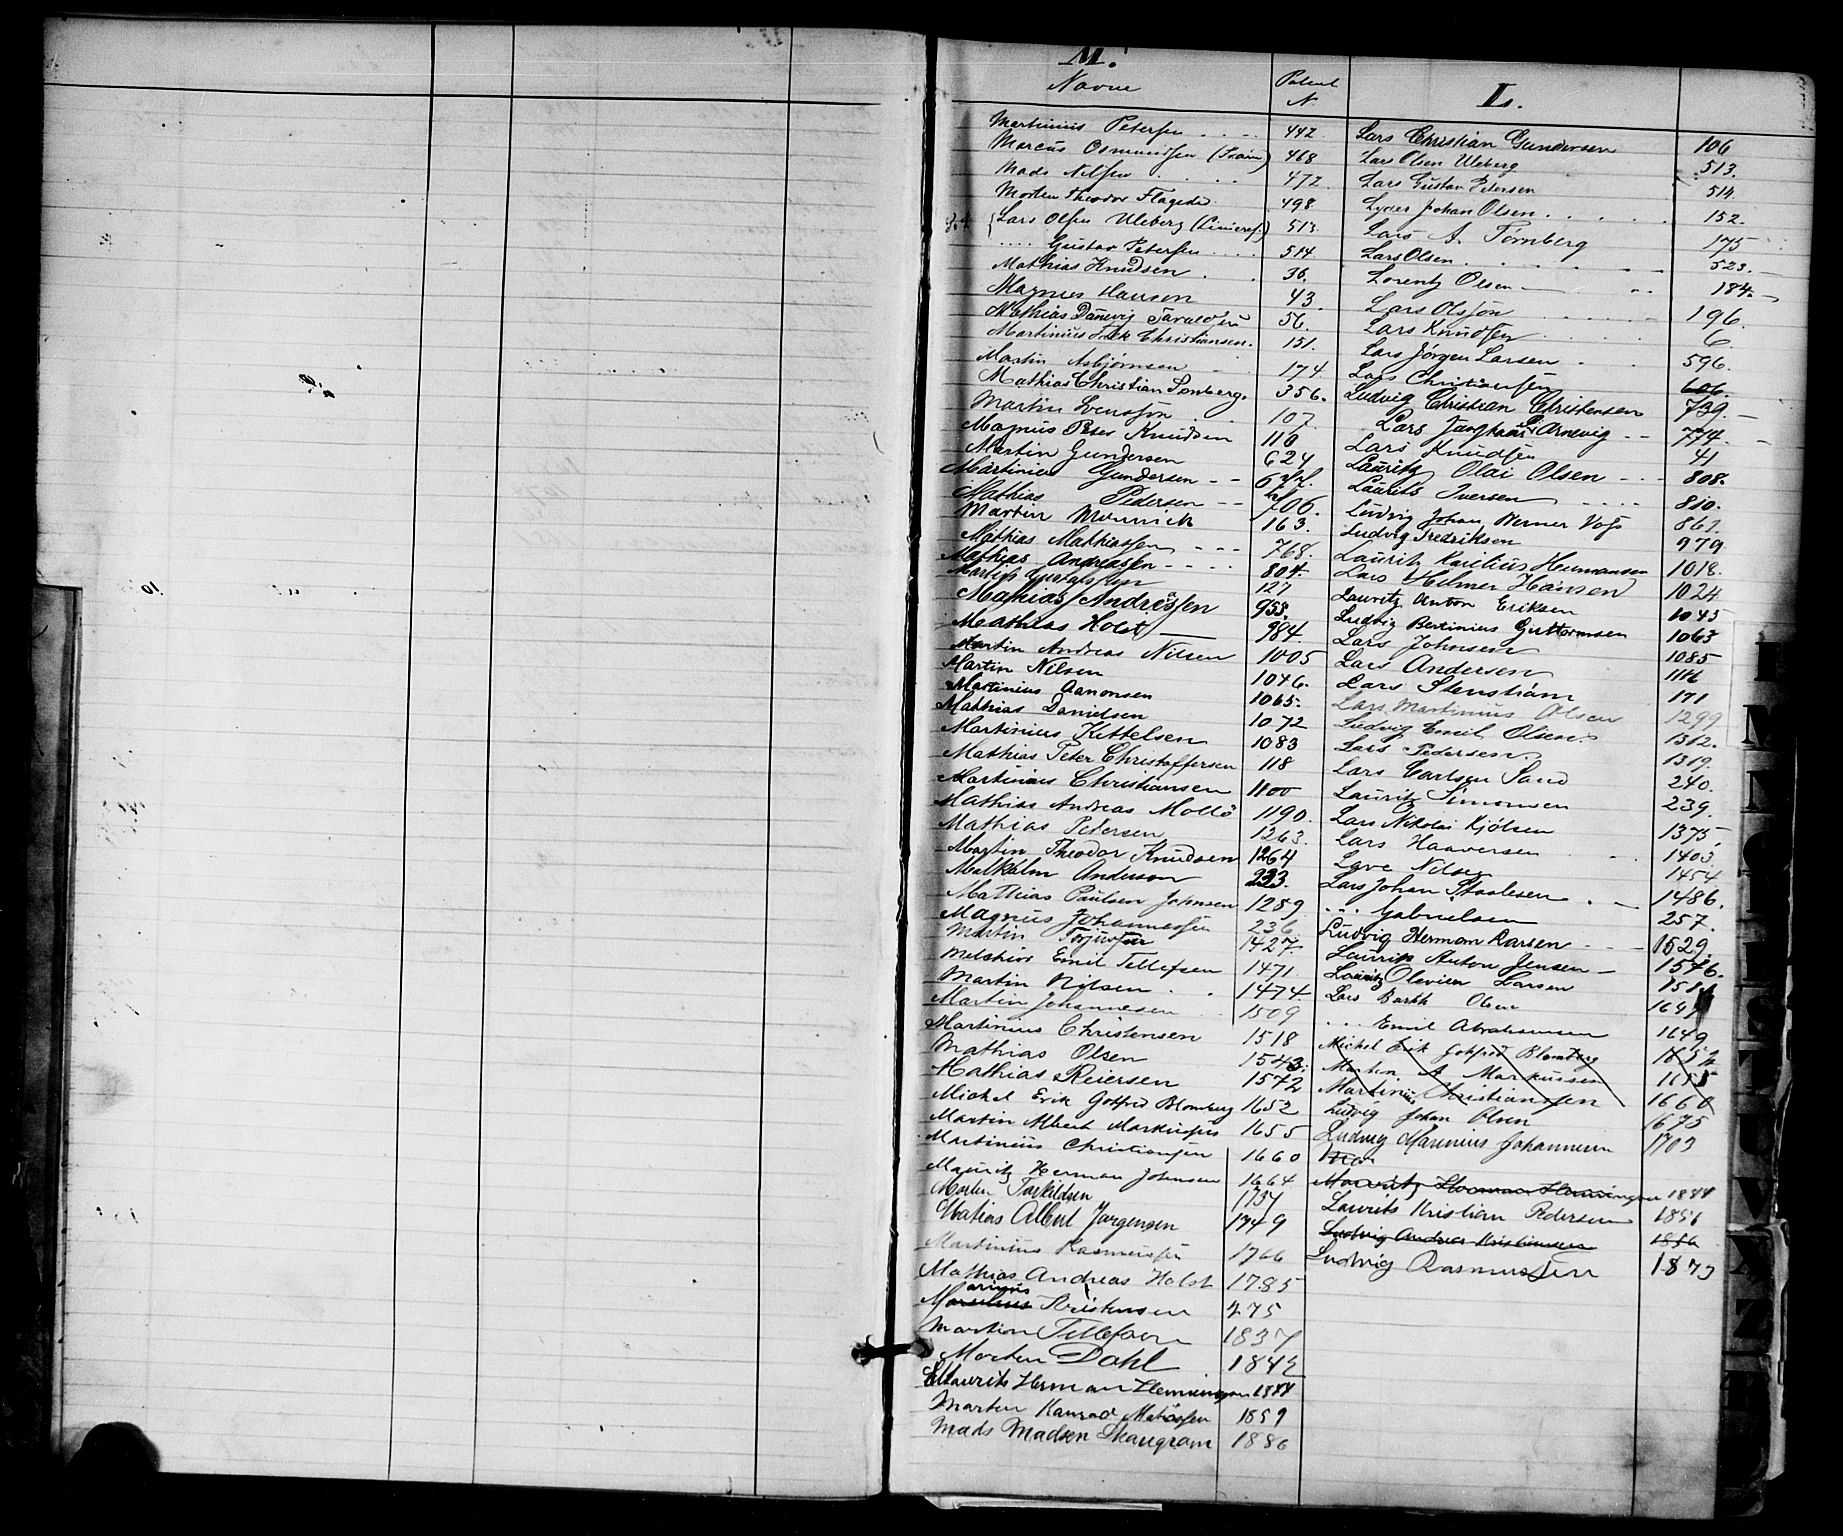 M.
Navne
Patent
N.
L.
Martinius Petersen 442.
Marcus Osmundsen 468
Mads Nilsen 472.
Morten Theodor 498
Lars Olsen Uleberg 513
Gustav Petersen 514
Mathias Knudsen 36.
Magnus Hansen 43
Mathias Danevig 56.
Martinius Christiansen. 151.
Martin Asbjørnsen 174.
Mathias Christian 356.
Martin Svensson 107
Magnus Peter Knudsen 110
Martin Gundersen 624
Martinius Gundersen
Mathias Pedersen 706.
Martin 163.
Mathias Mathiassen 768.
Mathias Andreasen 804.
127
Mathias Andreassen 958.
Mathias Holst 984.
Martin Andreas Nilsen 1005
Martin Nilsen 1046.
Martinius Aanonsen 1065.
Mathias Danielsen 1072
Martinius Kittelsen 1083
Mathias Peter Christoffersen 118
Martinius Christiansen 1100
Mathias Andreas 1190.
Mathias Petersen 1263.
Martin Theodor Knudsen 1264
Malkolm Anderson 233.
Mathias Paulsen Johnsen 1289
Magnus Johannessen 236
Martin 1427.
Melchior Emil Tellefsen 1471
Martin Nilsen 1474.
Martin Johannesen 1509
Martinius Christensen 1518
Mathias Olsen 1543.
Mathias Reiersen 1572
Michel Erik Gotfred Blomberg 1652
Martin Albert 1655
Martinius Christiansen 1660
Mauritz Herman Johnsen 1664
Morten Torkildsen
Matias Albert Jørgensen 1749
Martinius Rasmussen 1766
Mathias Andreas Holst 1785
Kristensen 275
Tellefsen 1837
Morten Dahl 1842
Maurits Herman Henningsen 1844
Martin Konrad 1859
Mads Madsen 1886
Lars Christian Gundersen 106
Lars Olsen Uleberg 513.
Lars Gustav Petersen 514
Johan Olsen 152.
Lars A. Tørnberg 175
Lars Olsen 523.
Lorentz Olsen 184.
Lars Olsson 196.
Lars Knudsen 6.
Lars Jørgen Larsen 596.
Lars Christiansen 606.
Ludvig Christian Christensen 739
Lars Arnevig 774.
Lars Knudsen 41
Lauritz Olai Olsen 808.
Laurits Iversen 810.
Ludvig Johan Werner 861
Ludvig Fredriksen 979
Lauritz Karelius Hermansen 1018.
Lars Helmer Hansen 1024
Lauritz Anton Eriksen 1045
Ludvig Bertinius Guttormsen 1063
Lars Johnsen 1085
Lars Andersen
Lars Stenstrøm 171
Lars Martinius Olsen 1299
Ludvig Emil Olsen 1312.
Lars Pedersen 1319.
Lars Carlsen Sand 240.
Lauritz Simonsen 239.
Lars Nikolai Kjølsen 1375
Lars Haaversen 1403.
Nilsen 1454
Lars Johan Staalesen 1486.
Gabrielsen 257.
Ludvig Herman Larsen 1529.
Laurits Anton Jensen 1546.
Lauritz Olavius Larsen
Lars Barth Olsen
Emil Abrahamsen 1649
Michel Erik Gotfred Blomberg 1652
Morten A Markussen 1655
Martinius Christiansen 1660
Ludvig Johan Olsen 1675
Ludvig Marinius Johannesen 1703
Mauritz Herman Henningsen 1844
Laurits Kristian Pedersen 1851
Ludvig Andreas Kristiansen 1856
Ludvig Rasmussen 1873